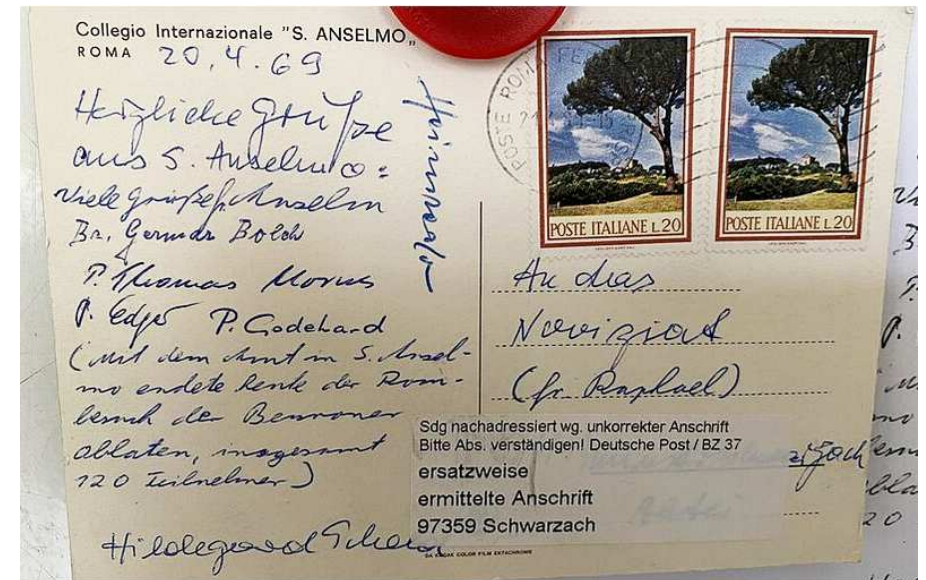 Collegio Internazionale "S. ANSELMO"
ROMA 20.4.69
Herzliche Grüße
aus S. Anselmo:
Viele Grüße fr. Anselm
Br. German
P. Thomas Morus
P. P. Godehard
(Mit dem Amt in S. Ansel-
mo endete heute der Rom-
besuch der
ablaten, insgesamt
120 Teilnehmer)
Hildegard
POSTE ROMA
POSTE ITALIANE L.20
POSTE ITALIANE L.20
An das
Noviziat
(fr. Raphael)
Sdg nachadressiert wg. unkorrekter Anschrift
Bitte Abs. verständigen! Deutsche Post / BZ 37
ersatzweise
ermittelte Anschrift
97359 Schwarzach
KODAK COLOR FILM EKTACHROME